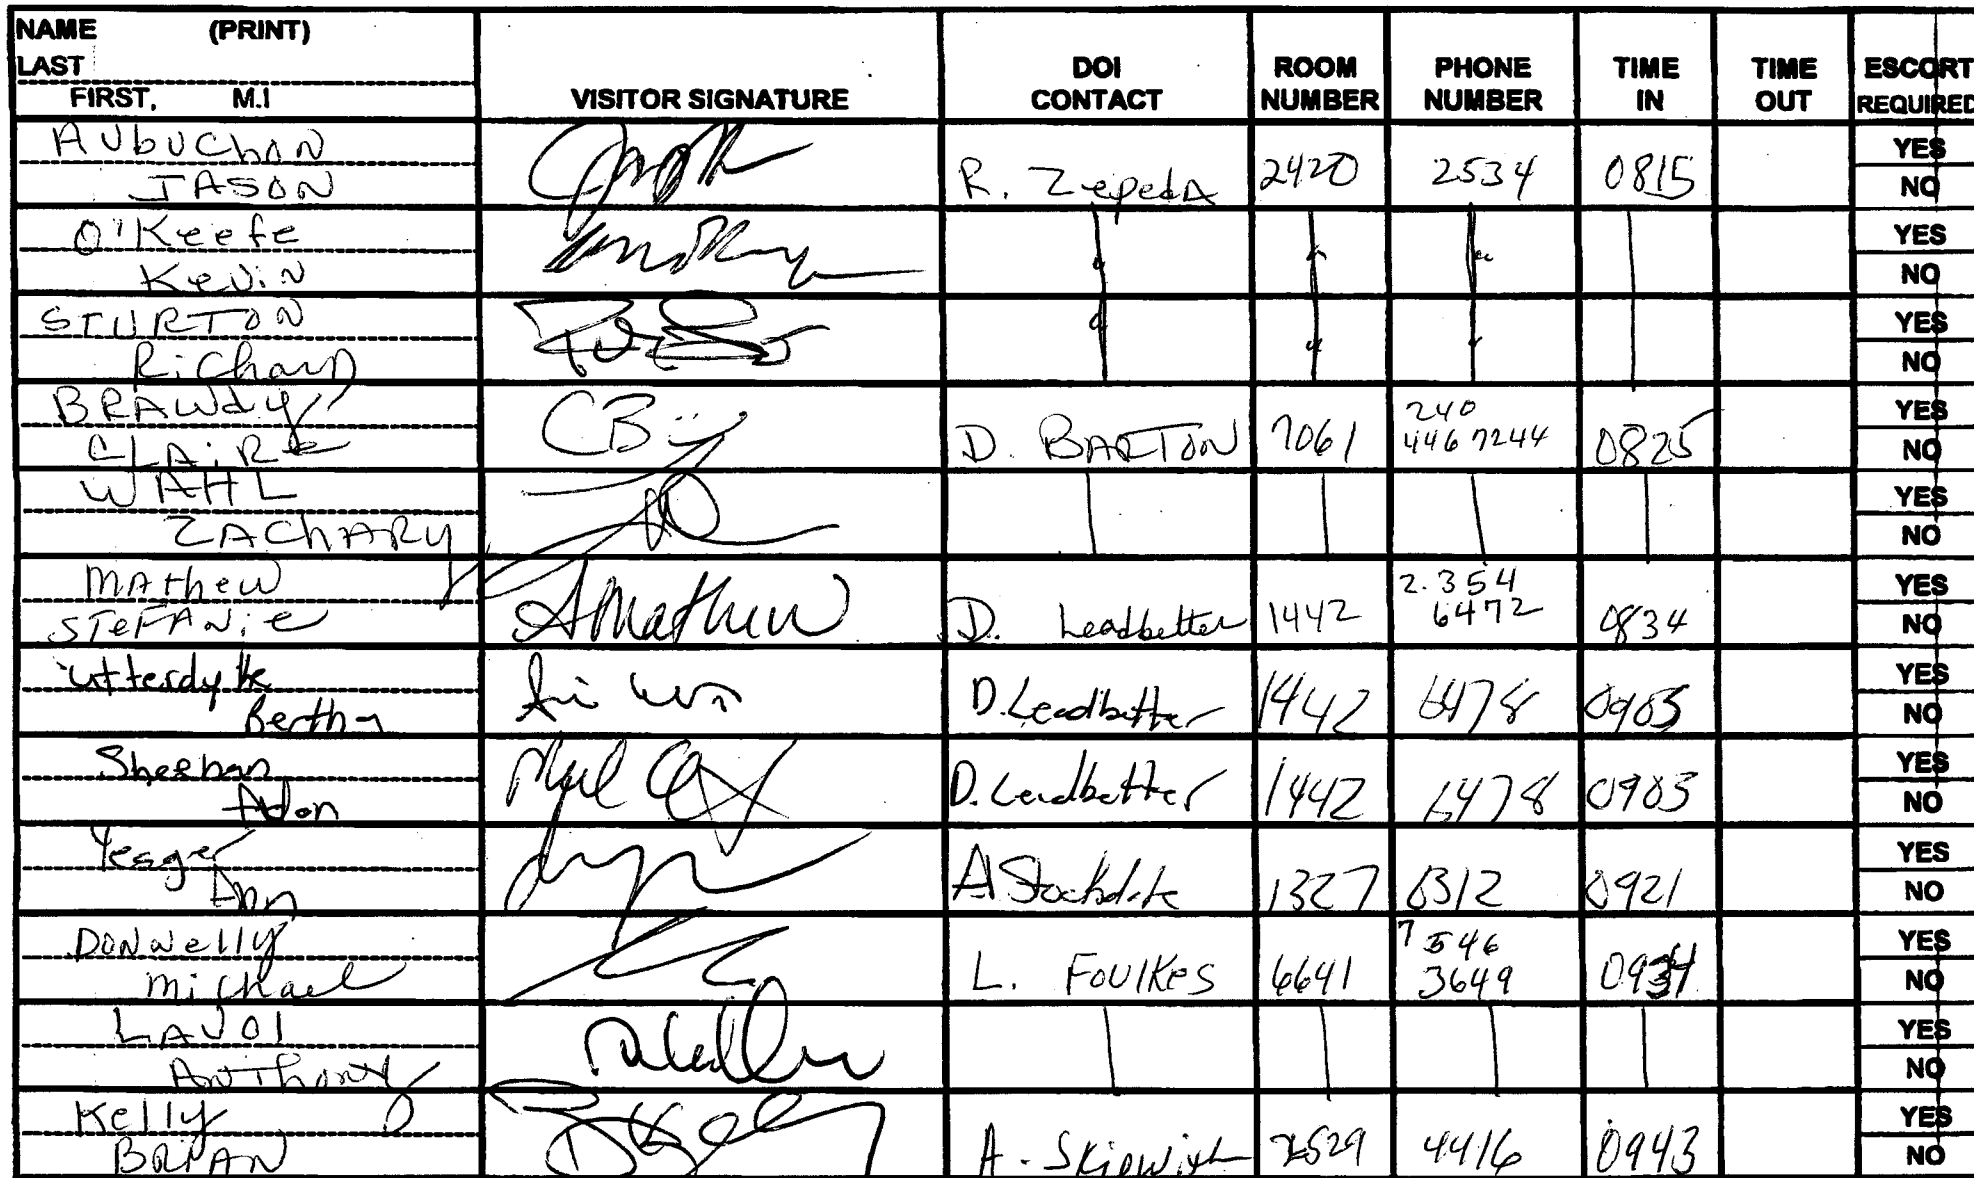 NAME (PRINT)
LAST
FIRST, M.I
VISITOR SIGNATURE
DOI CONTACT
ROOM NUMBER
PHONE NUMBER
TIME IN
TIME OUT
ESCORT REQUIRED
AUbUChON
JASON
R. ZepedA 2420 2534 0815
YES
NO
O'Keefe
KeviN
YES
NO
STURTON
RiChard
YES
NO
BRAWdy
CLAiRe
CB
D. BARTON 7061 240 4467244 0825
YES
NO
WAHL
ZAChARY
YES
NO
MAthew
STeFANie
SMathew
D. Leadbetter 1442 2.354 6472 0834
YES
NO
utterdyke
Bertha
D. Leadbetter 1442 6478 0905
YES
NO
Sheehan
D. Leadbetter 1442 6478 0905
YES
NO
Yeager
Ann
A Stockdale 1327 6312 0921
YES
NO
DONNelly
Michael
L. FOUlKes 6641 7 546 3649 0934
YES
NO
LAVOI
ANThony
YES
NO
Kelly
BRIAN
A. Skipwith 2529 4416 0943
YES
NO